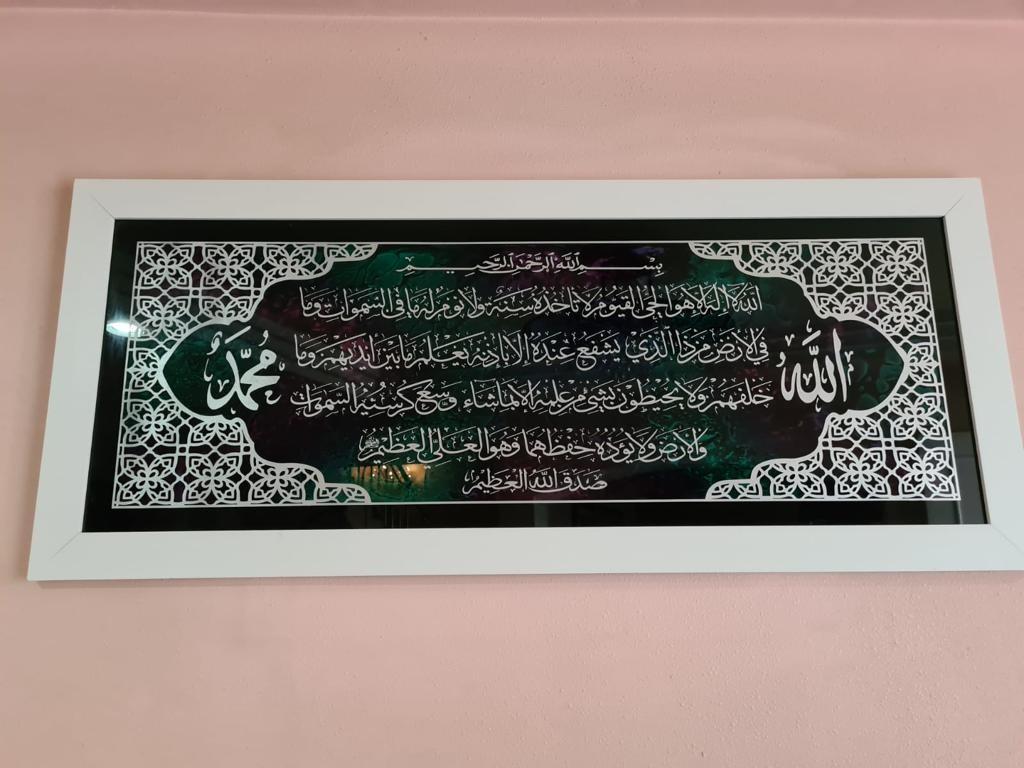 بسم الله الرحمن الرحيم
الله لا إله إلا هو الحي القيوم لا تأخذه سنة ولا نوم له ما في السموات وما
في الأرض من ذا الذي يشفع عنده إلا بإذنه يعلم ما بين أيديهم وما
خلفهم ولا يحيطون بشيء من علمه إلا بما شاء وسع كرسيه السموات
والأرض ولا يؤده حفظهما وهو العلي العظيم
صدق الله العظيم
الله
محمد